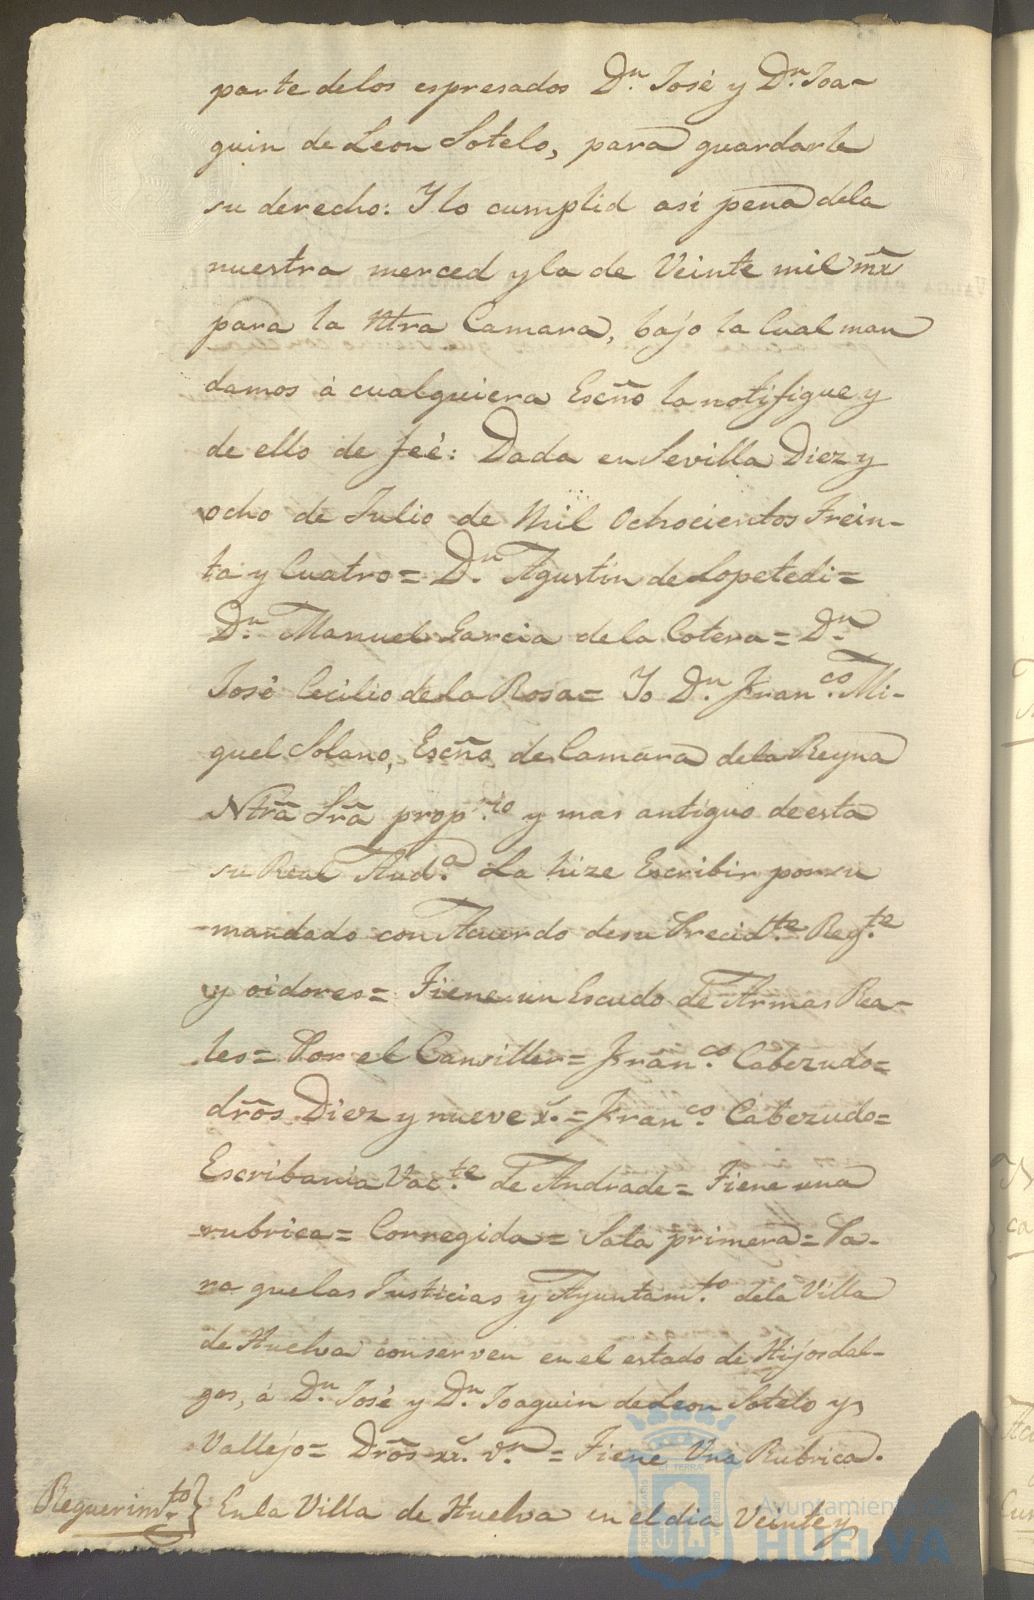 parte delos espresados Dn. José y Dn. Joa-
quin de Leon Sotelo, para guardarle
su derecho: Y lo cumplid asi pena dela
nuestra merced y la de Veinte mil mrx
para la Ntra Camara, bajo la Cual man
damos á cualquiera Escño la notifique y
de ello de feé: Dada en Sevilla Diez y
ocho de Julio de Mil Ochocientos Trein-
ta y Cuatro = Dn. Agustin de Lopetedi =
Dn. Manuel Garcia dela Cotera = Dn.
José Cecilio dela Rosa = Yo Dn. Franco. Mi-
guel Solano, Escño de Camara dela Reyna
Ntrã Srã proprio. y mas antiguo de esta
su Real Auda. La hize Escribir por su
mandado con Acuerdo de su Precidte. Regte.
y oidores = Tiene un Escudo de Armas Rea-
les = Por el Cansiller = Franco. Cabezudo =
drõs Diez y nueve r. = Franco. Cabezudo =
Escribania Vacte. de Andrade = Tiene una
rubrica = Corregida = Sala primera = Pa-
ra que las Justicias y Ayuntamto. dela Villa
de Huelva conserven en el estado de Hijosdal-
gos, á Dn. José y Dn. Joaquin de Leon Sotelo y
Vallejo = Drõs vn. = Tiene Una Rubrica.
Reguerimto. } En la Villa de Huelva en el dia Veinte y
Ayuntamien
HUELVA